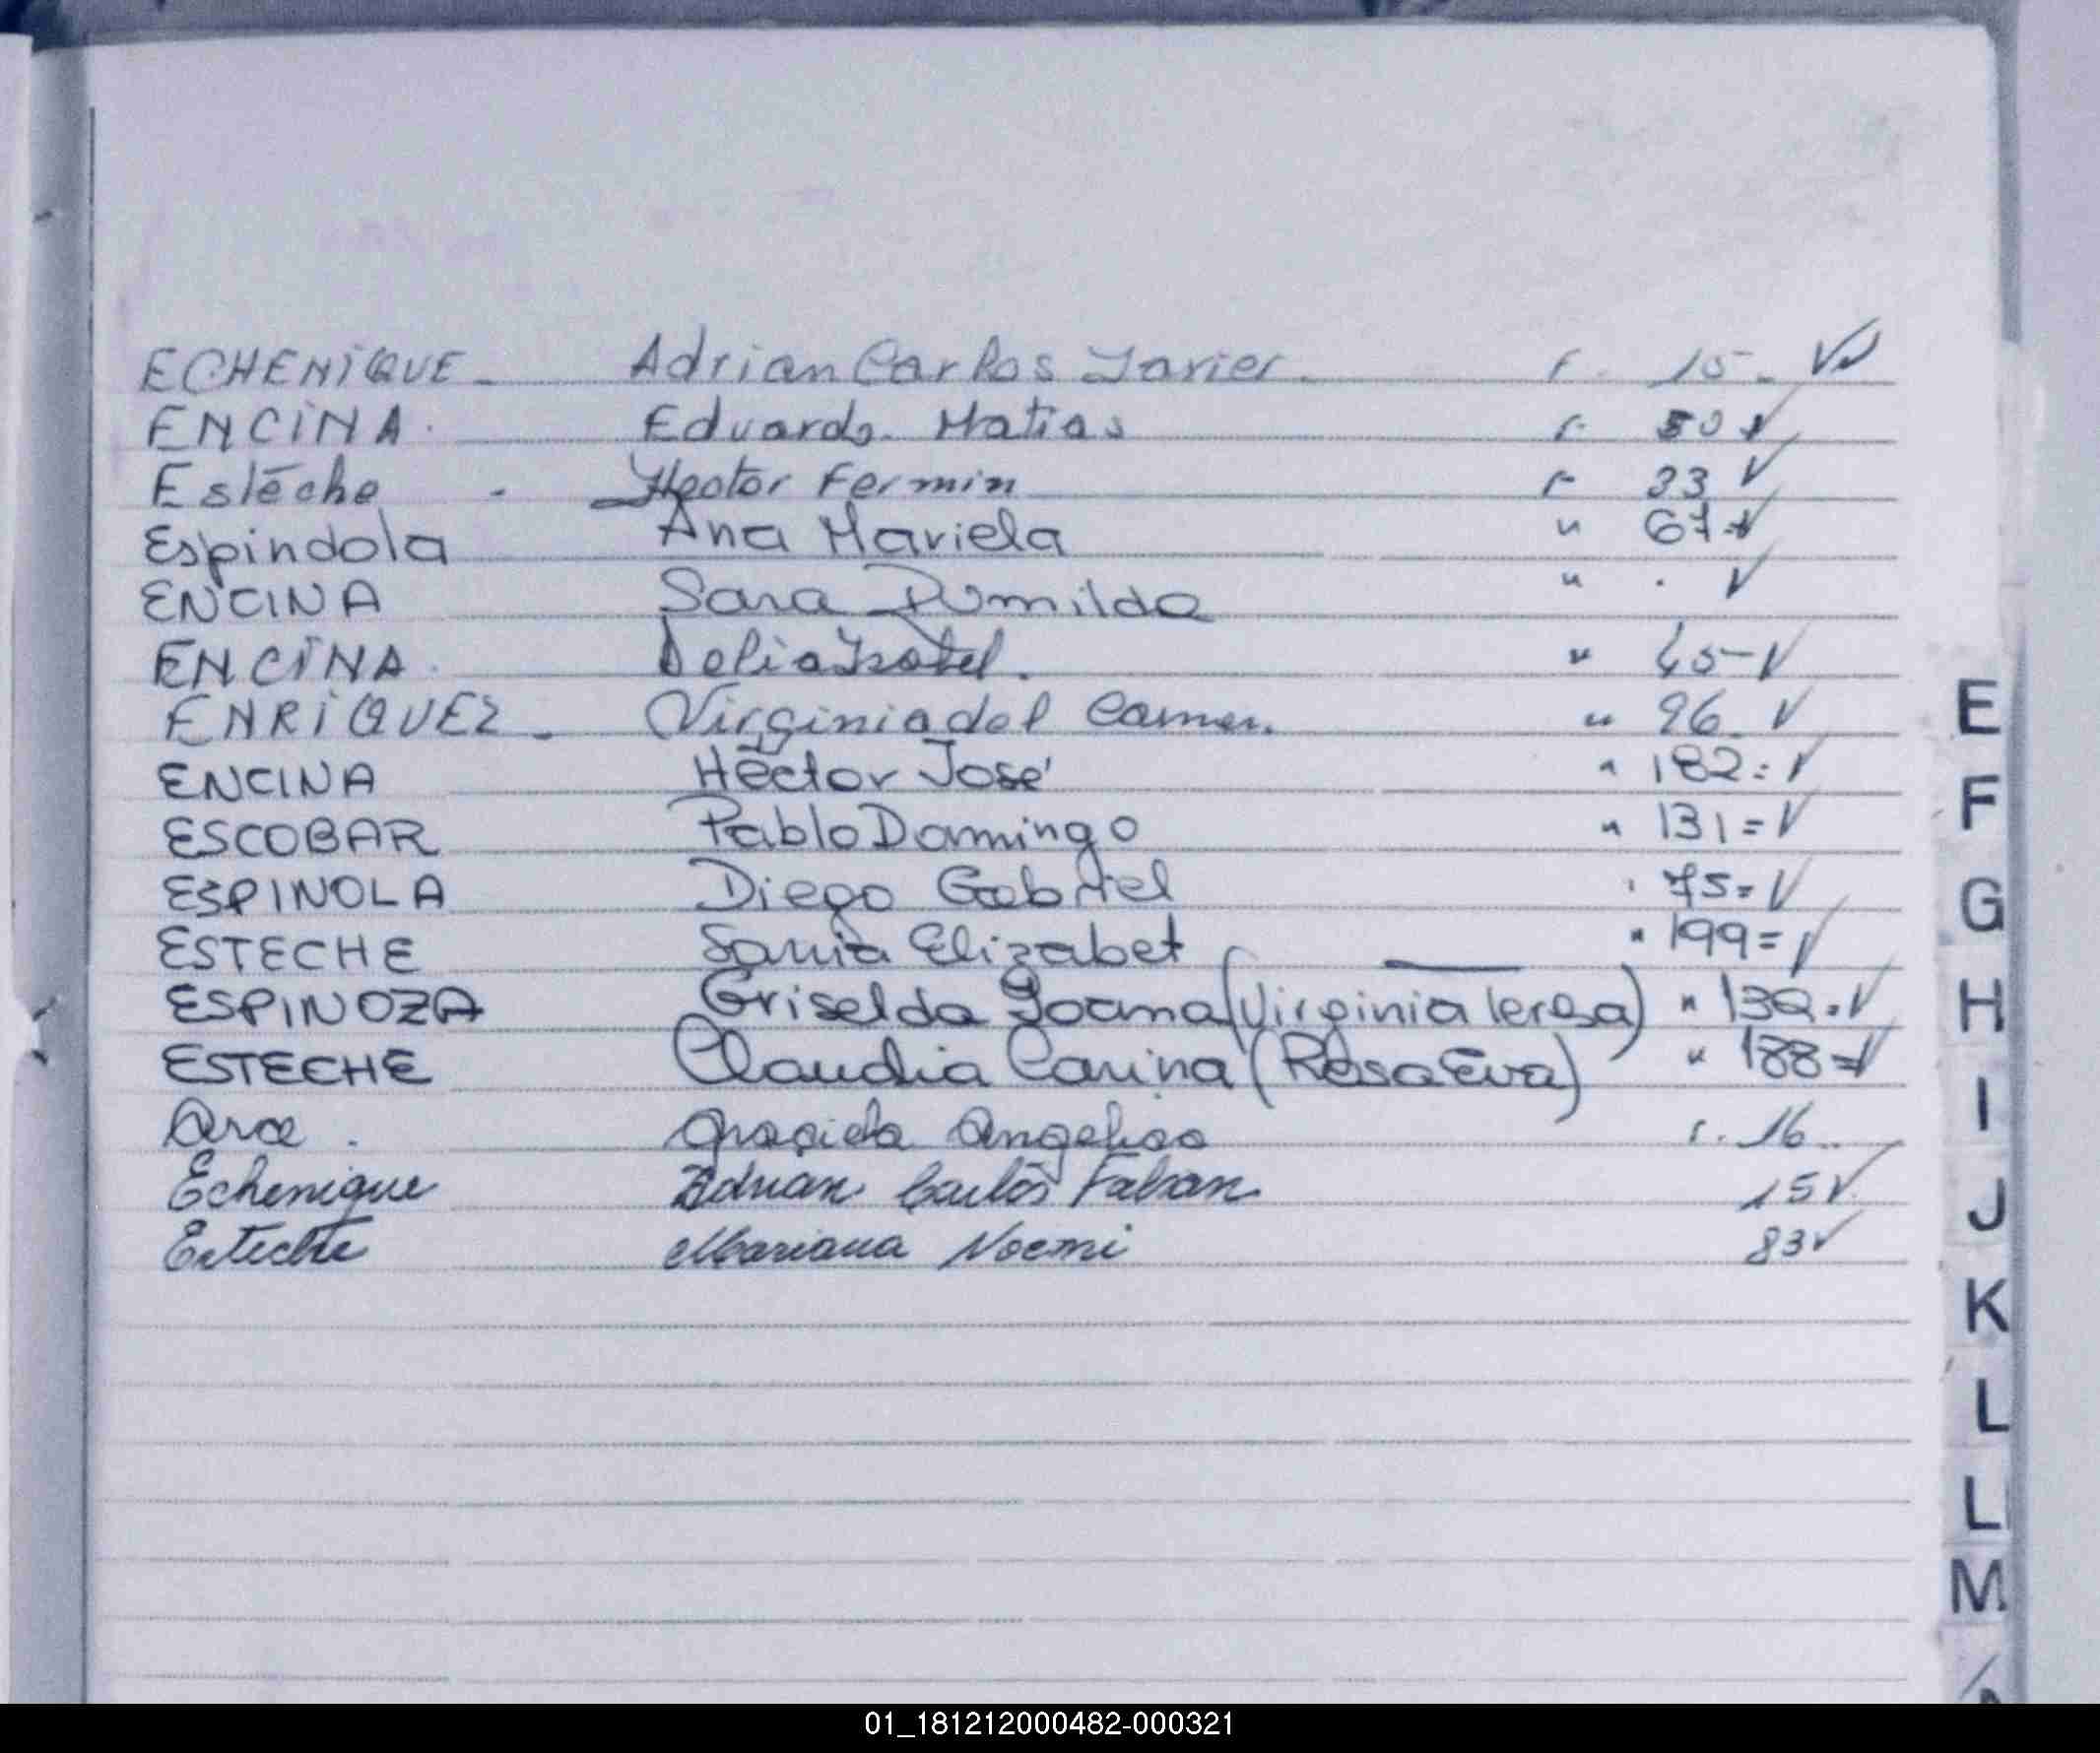 ECHENIQUE - Adrian Carlos Javier. F. 15 -
ENCINA. Eduardo Matias F. 50
Estéche - Hector Fermin F 33
Espindola Ana Mariela " 67
ENCINA Sara Rumilda " .
ENCINA. Delia Isabel. " 45 -
ENRIQUEZ - Virginia del Carmen. " 96
ENCINA Héctor José " 182 =
ESCOBAR Pablo Domingo " 131 =
ESPINOLA Diego Gabriel " 75 =
ESTECHE Sania Elizabet " 199 =
ESPINOZA Griselda Joana (Virginia Teresa) " 132 =
ESTECHE Claudia Carina (Rosa Eva) " 188 =
Arce. Graciela Angelica F. 16
Echenique Adrian Carlos Fabian 15
Esteche Mariana Noemi 83
E
F
G
H
I
J
K
L
L
M
01_181212000482-000321